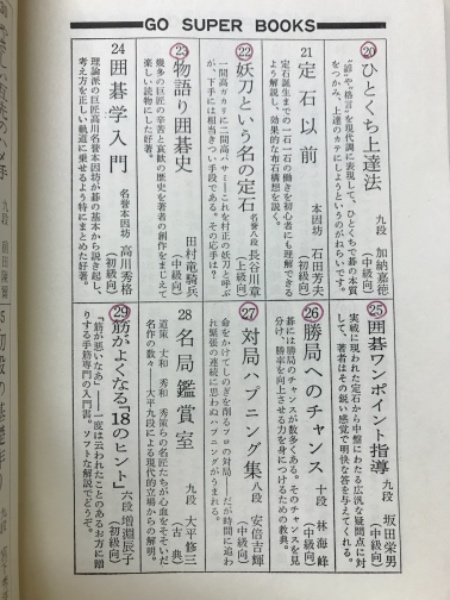 GO SUPER BOOKS
20 ひとくち上達法
九段 加納嘉徳
(中級向)
"譜"や"格言"を現代調に表現して、ひとくちで碁の本質
をつかみ、上達のカテにしようというのがねらいです。
21 定石以前
本因坊 石田芳夫
(初級向)
定石誕生までの一石一石の働きを初心者にも理解できる
よう解説し、効果的な布石構想を説く。
22 妖刀という名の定石
名誉八段 長谷川章
(上級向)
一間高ガカリに二間高バサミ——これを村正の妖刀と呼ぶ
が、下手には相当きつい手段である。その応手は?
23 物語り囲碁史
田村竜騎兵
(中級向)
幾多の巨匠の辛苦と哀歓の歴史を著者の創作をまじえて
楽しい読物にした好著。
24 囲碁学入門
名誉本因坊 高川秀格
(初級向)
理論派の巨匠高川名誉本因坊が碁の基本から説き起し、
考え方を正しい軌道に乗せるよう特にまとめた好著。
25 囲碁ワンポイント指導
九段 坂田栄男
(中級向)
実戦に現われた定石から中盤にわたる広汎な疑問点に対
して、著者はその鋭い感覚で明快な答を与えてくれる。
26 勝局へのチャンス
十段 林海峰
(中級向)
碁には勝局のチャンスが数多くある。そのチャンスを見
分け、勝率を向上させる力を身につけるための教典。
27 対局ハプニング集
八段 安倍吉輝
(中級向)
命をかけてしのぎを削るプロの対局 だが時間に追わ
れ緊張の連続に思わぬハプニングがうまれる。
28 名局鑑賞室
九段 大平修三
(古典)
道策 大和 秀和 秀策らの名匠たちが心血をそそいだ
名作の数々——大平九段による現代的立場からの解明。
29 筋がよくなる「18のヒント」
六段 増淵辰子
(初級向)
「筋が悪いなあ」——一度は云われたことのあるお方に贈
りする手筋専門の入門書。ソフトな解説でどうぞ。